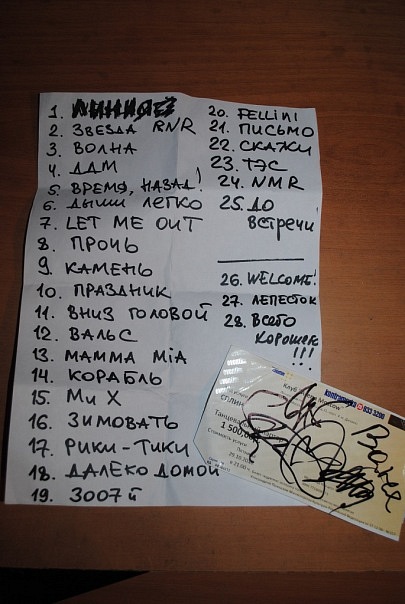 1. ЛИНИЯ
2. ЗВЕЗДА RNR
3. ВОЛНА
4. ДДМ
5. ВРЕМЯ, НАЗАД!
6. ДЫШИ ЛЕГКО
7. LET ME OUT
8. ПРОЧЬ
9. КАМЕНЬ
10. ПРАЗДНИК
11. ВНИЗ ГОЛОВОЙ
12. ВАЛЬС
13. MAMMA MiA
14. КОРАБЛЬ
15. Ми Х
16. ЗИМОВАТЬ
17. РИКИ-ТИКИ
18. ДАЛЕКО ДОМОЙ
19. 3007й
20. FELLiNi
21. ПИСЬМО
22. СКАЖИ
23. ТЭС
24. NMR
25. ДО
встречи
26. WELCOME!
27. ЛЕПЕСТОК
28. Всего
хорошего
!!!
Контрамарка 933 3200
Клуб
СПЛИН
Танцевальный
1 500,00
Ване